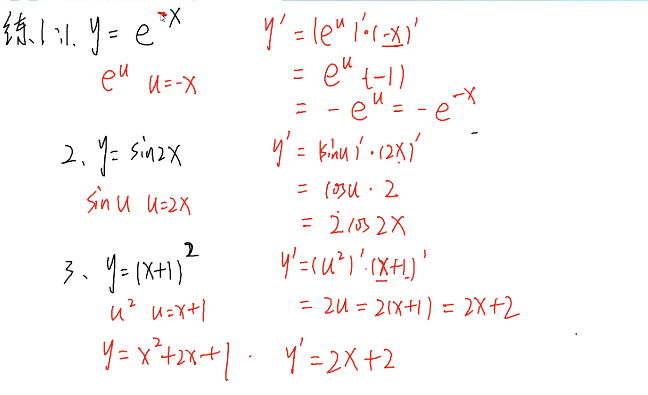 练1:1. y = e^-x y' = (e^u)'·(-x)'
e^u u=-x = e^u (-1)
= -e^u = -e^-x
2、y= sin2x y' = (sinu)'·(2x)'
sin u u=2x = cosu · 2
= 2cos2x
3、y=(x+1)^2 y'=(u²)'·(x+1)'
u² u=x+1 = 2u = 2(x+1) = 2x+2
y= x²+2x+1 . y'=2x+2